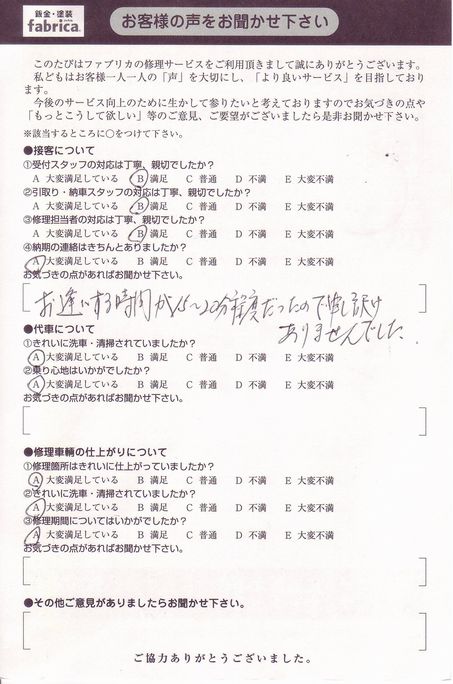 鈑金・塗装
fabrica.
お客様の声をお聞かせ下さい
このたびはファブリカの修理サービスをご利用頂きまして誠にありがとうございます。
私どもはお客様一人一人の「声」を大切にし、「より良いサービス」を目指しており
ます。
今後のサービス向上のために生かして参りたいと考えておりますのでお気づきの点や
「もっとこうして欲しい」等のご意見、ご要望がございましたら是非お聞かせ下さい。
※該当するところに○をつけて下さい。
●接客について
①受付スタッフの対応は丁寧、親切でしたか?
A 大変満足している B 満足 C 普通 D 不満 E 大変不満
②引取り・納車スタッフの対応は丁寧、親切でしたか?
A 大変満足している B 満足 C 普通 D 不満 E 大変不満
③修理担当者の対応は丁寧、親切でしたか?
A 大変満足している B 満足 C 普通 D 不満 E 大変不満
④納期の連絡はきちんとありましたか?
A 大変満足している B 満足 C 普通 D 不満 E 大変不満
お気づきの点があればお聞かせ下さい。
お逢いする時間が15~20分程度だったので申し訳
ありませんでした.
●代車について
①きれいに洗車・清掃されていましたか?
A 大変満足している B 満足 C 普通 D 不満 E 大変不満
②乗り心地はいかがでしたか?
A 大変満足している B 満足 C 普通 D 不満 E 大変不満
お気づきの点があればお聞かせ下さい。
●修理車輌の仕上がりについて
①修理箇所はきれいに仕上がっていましたか?
A 大変満足している B 満足 C 普通 D 不満 E 大変不満
②きれいに洗車・清掃されていましたか?
A 大変満足している B 満足 C 普通 D 不満 E 大変不満
③修理期間についてはいかがでしたか?
A 大変満足している B 満足 C 普通 D 不満 E 大変不満
お気づきの点があればお聞かせ下さい。
●その他ご意見がありましたらお聞かせ下さい。
ご協力ありがとうございました。